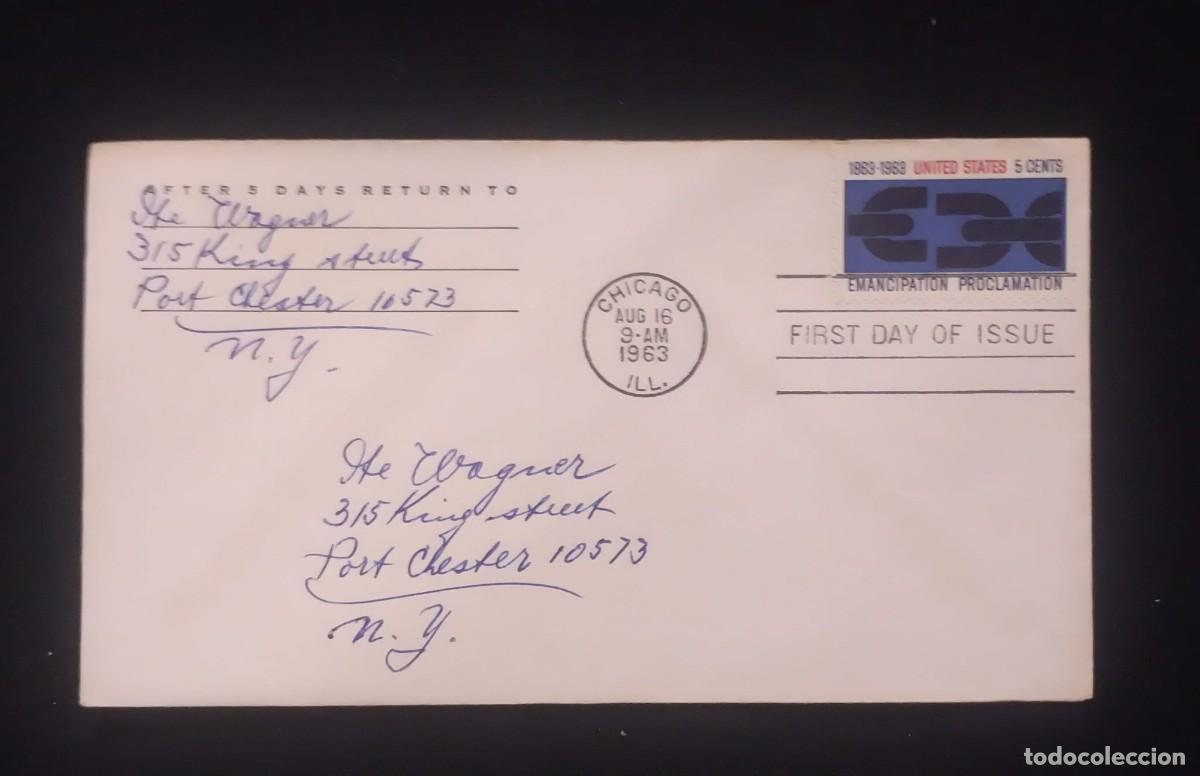 AFTER 5 DAYS RETURN TO
Ite Wagner
315 King street
Port Chester 10573
N.Y.
1863-1963 UNITED STATES 5 CENTS
EMANCIPATION PROCLAMATION
CHICAGO
AUG 16
9-AM
1963
ILL.
FIRST DAY OF ISSUE
Ite Wagner
315 King street
Port Chester 10573
N.Y.
todocoleccion